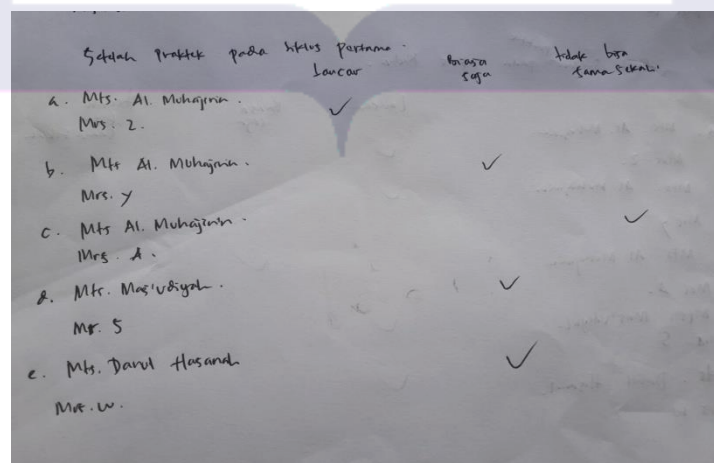 Setelah Praktek pada siklus pertama.
Lancar Biasa saja tidak bisa sama sekali.
a. Mts. Al. Muhajirin.
Mrs. Z.
b. Mts Al. Muhajirin.
Mrs. Y
c. Mts Al. Muhajirin.
Mrs. A.
d. Mts. Mas'udiyah.
Mr. S
e. Mts. Darul Hasanah
W.